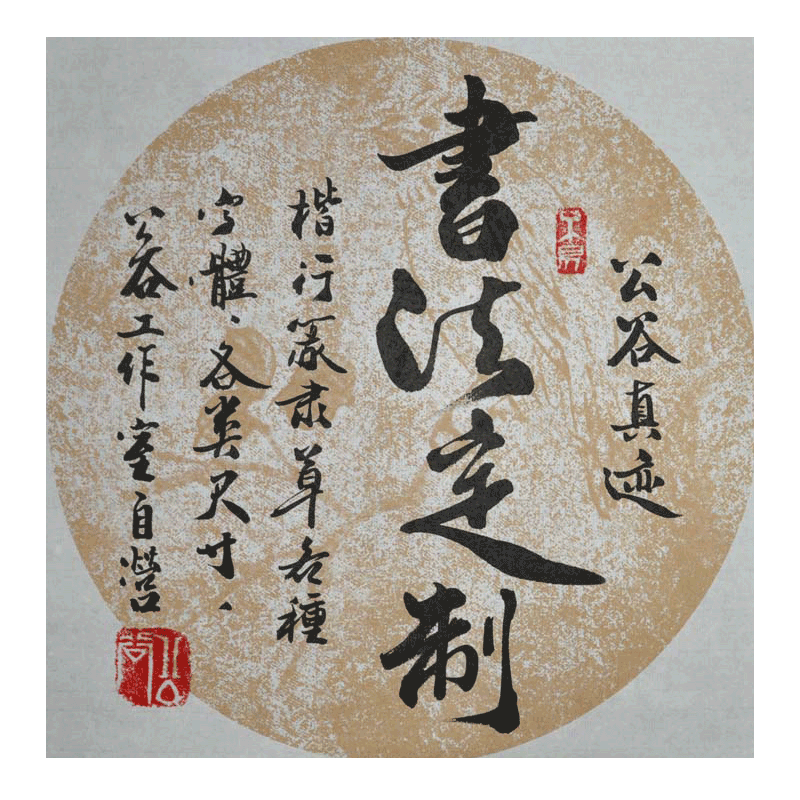 公谷真迹
書法定制
楷行篆隶草各種
字體、各类尺寸、
公谷工作室自營